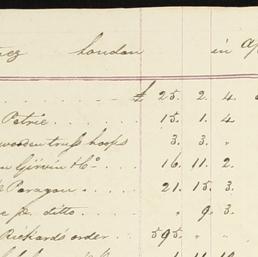 London in
£ 25. 2. 4.
Petrie 15. 1. 4
wooden truss hoops 3. 3. "
Girvin & Co 16. 11. 2
Paragon 21. 15. 3.
pr. ditto " 9. 3
Rickards order 595. " "